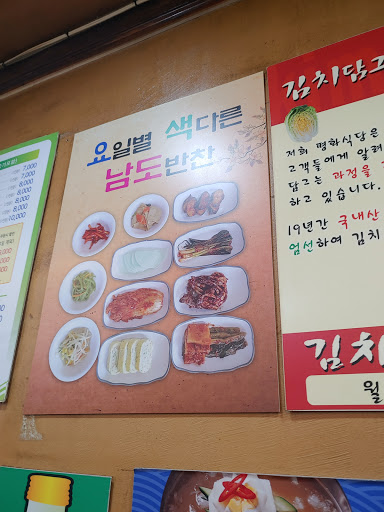 요일별 색다른
남도반찬
7,000
7,000
8,000
8,000
8,000
9,000
10,000
김치담그
저희 평화식당은
고객들에게 알려
담그는 과정을
하고 있습니다.
19년간 국내산
엄선하여 김치
김치
월